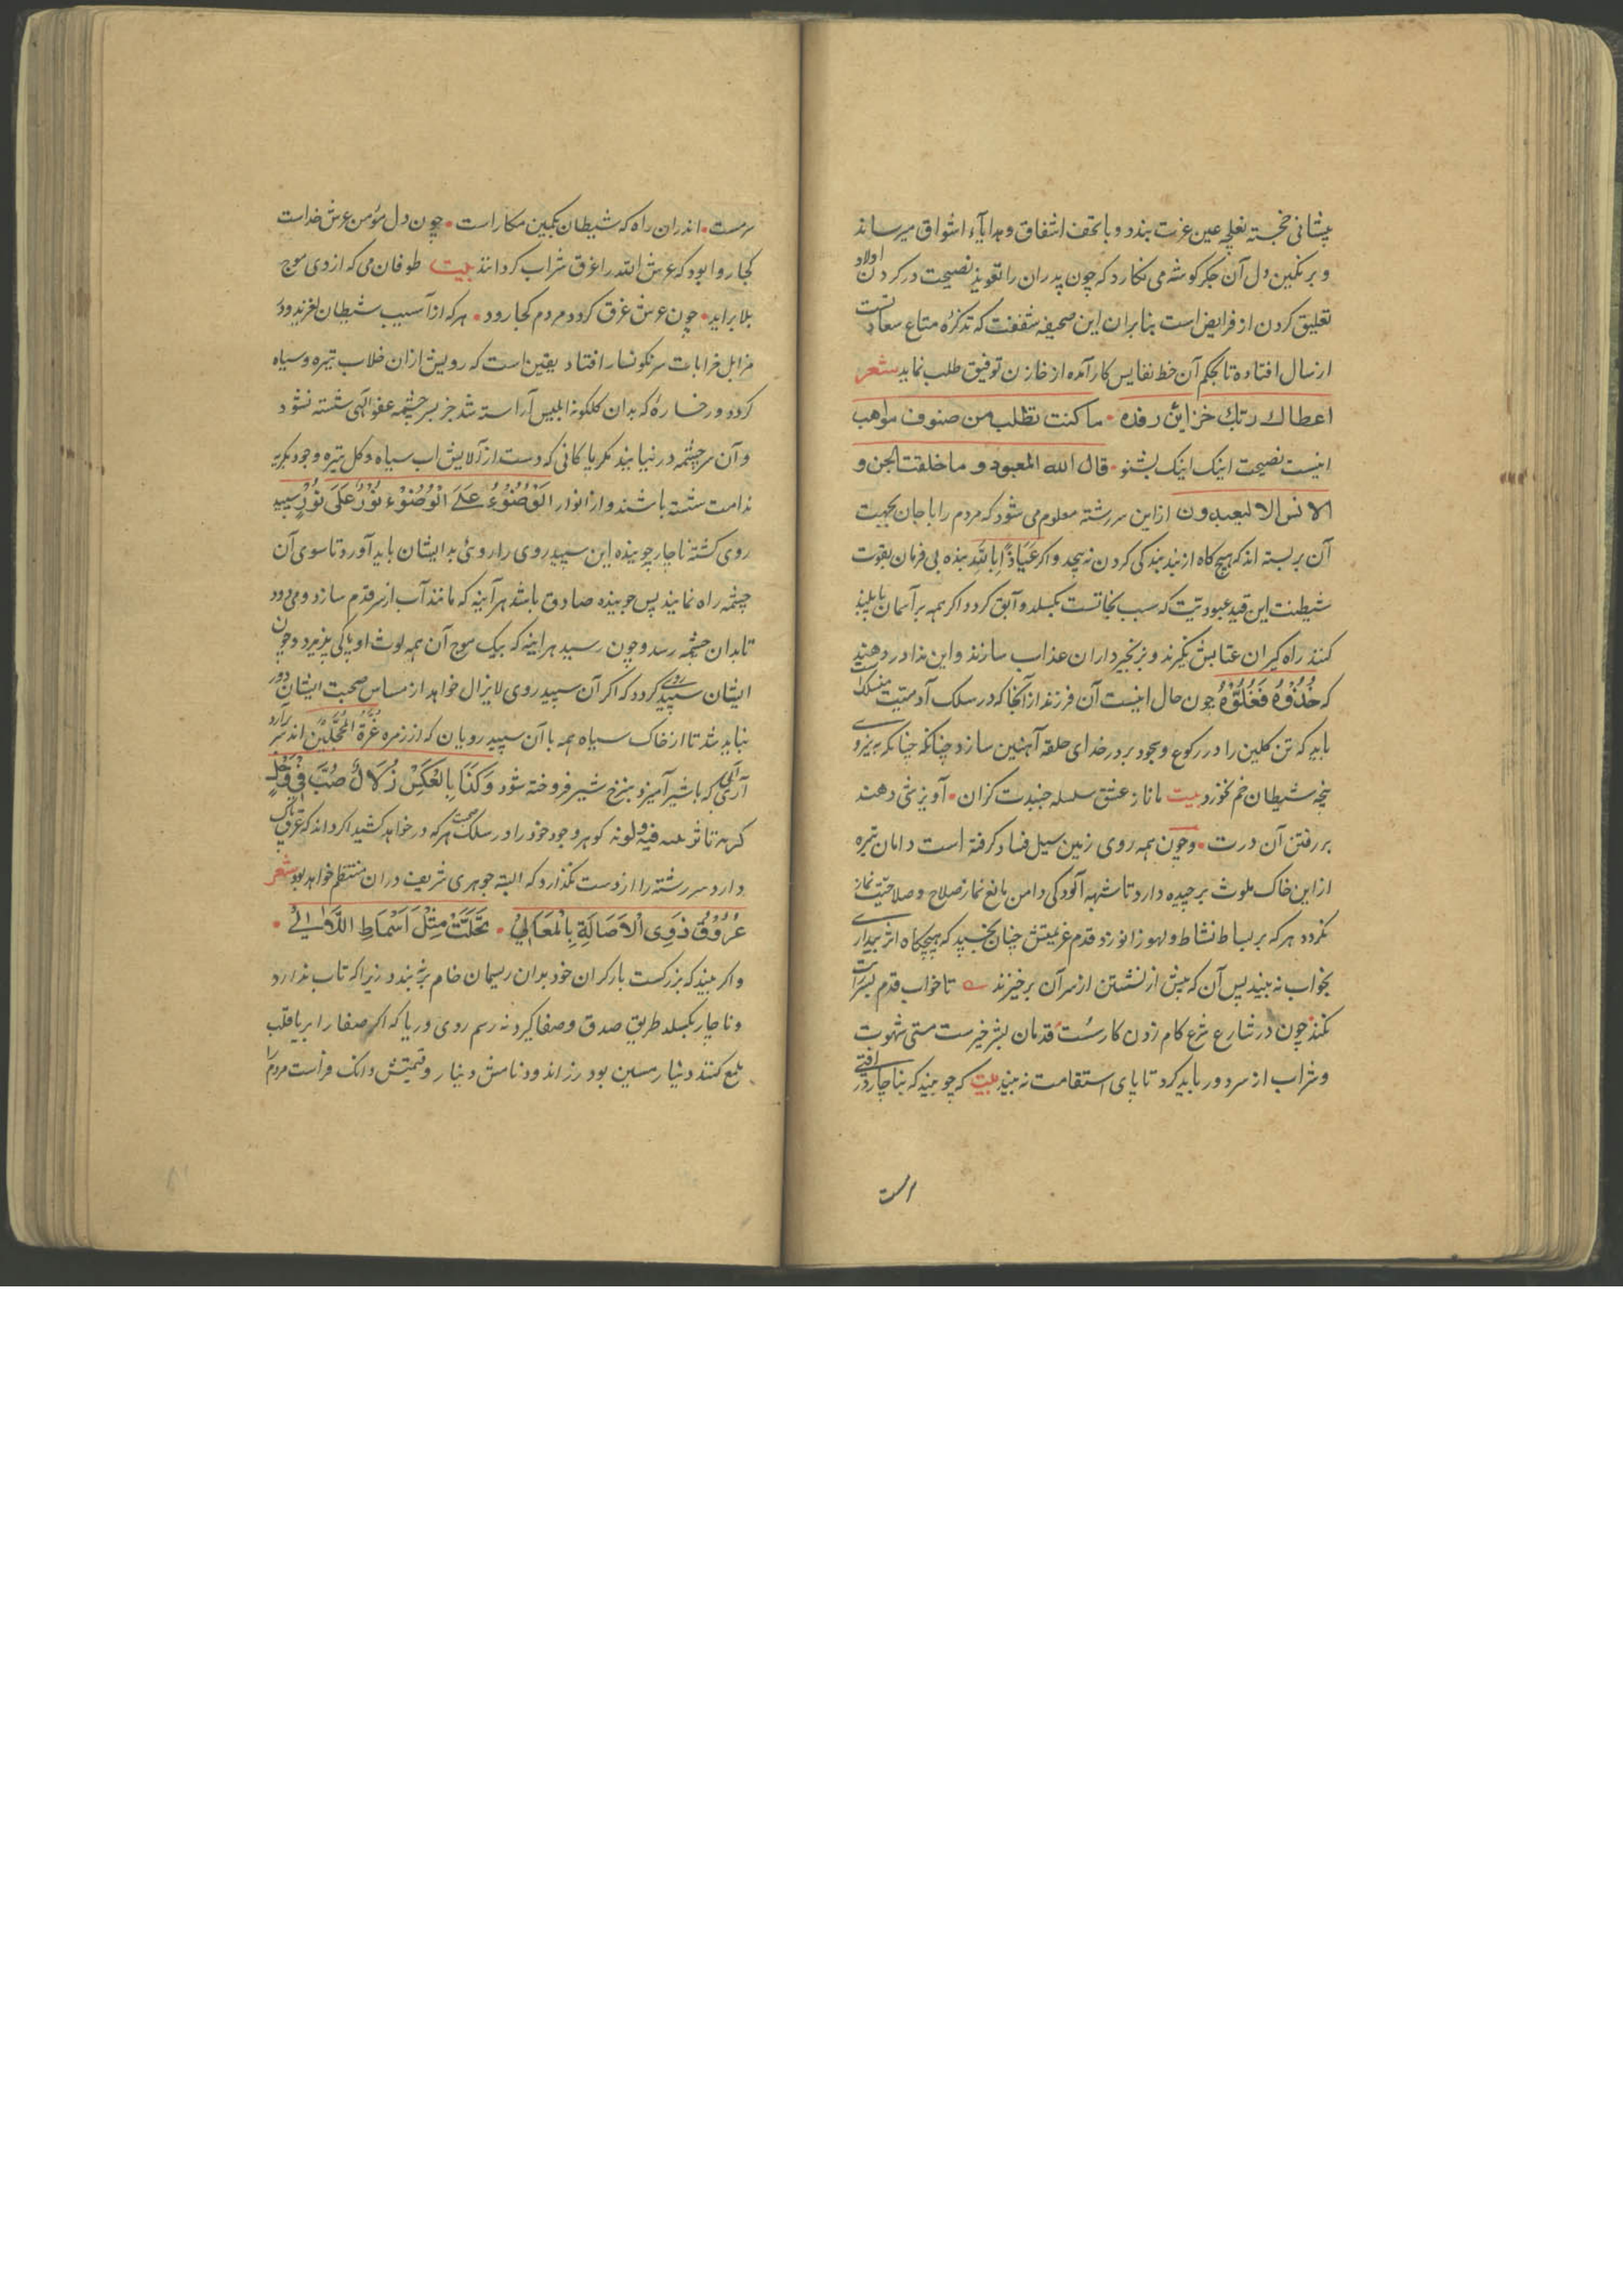 پیشانی خجسته بغلچه عین عزت بندد و با تحف اشفاق و هدایاء اشواق میرساند
و بر نگین دل آن جکر کوشه می نکارد که چون پدران را تعویذ نصیحت در کردن اولاد
تعلیق کردن از فرایض است بنابران این صحیفه شفقت که تذکرهٔ متاع سعادتست
ارسال افتاده تا بحکم آن خط نفایس کار آمده از خازن توفیق طلب نماید شعر
اعطاك ربك خزاین رفده • ما کنت تطلب من صنوف مواهب
اینست نصیحت اینک اینک بشنو • قال الله المعبود و ما خلقت الجن و
الانس الا لیعبدون ازاین سررشته معلوم می شود که مردم را با جان بجهت
آن بر بسته اند که هیچ کاه از بند بندکی کردن نه پیچد و اکر عیاذًا بالله بنده بی فرمان بقوت
شیطنت این قید عبودیت که سبب نجاتست بکسلد و آبق کردد اکر همه بر آسمان پا بلند
کند راه کیران عتابش بکیرند و بزنجیرداران عذاب سازند و این ندا در دهند
که خُذُوهُ فَغُلُّوهُ چون حال اینست آن فرزند از آنجا که در سلک آدمیت منسلکست
باید که تن کلین را در رکوع و سجود بر در خدای حلقه آهنین سازد چنانکه چنانکه به نیروی
پنجه شیطان خم نخورد بیت تا ناز عشق سلسله جنبدت کزان • آویزشی دهند
بر رفتن آن درت • و چون همه روی زمین سیل فساد کرفته است دامان تیره
ازاین خاک ملوث برچیده دارد تا شبهه آلودکی دامن مانع نماز صلاح و صلاحیت نماز
نکردد هر که بر بساط نشاط و لهو زانو زد قدم عزیمتش چنان بخسپد که هیچکاه اثر بیداری
بخواب نه بیند پس آن که پیش از نشستن از سر آن برخیزند تا خواب قدم بسرات
نکند چون در شارع شرع کام زدن کار سُست قدمان بشر خیرست مستی شهوت
و شراب از سر دور باید کرد تا پای استقامت نه بیند بیت که چو بیند که بناچار در افتی
سرمست • اندران راه که شیطان بکمین مکار است • چون دل مؤمن عرش خداست
کجا روا بود که عرش الله را غرق شراب کردانند بیت طوفان می که از وی موج
بلا براید • چون عرش غرق کردد مردم کجا رود • هر که از آسیب شیطان لغزید و در
مزابل خرابات سرنکونسار افتاد یقین است که رویش ازان خلاب تیره و سیاه
کردد و رخسارهٔ که بدان کلکونه ابلیس آراسته شد جز بسر چشمه عفو الهی شسته نشود
و آن سرچشمه در نیابند مکر پاکانی که دست از آلایش اب سیاه و کل تیره وجود بکریه
ندامت شسته باشند و از انوار الوُضُوْءُ عَلَی الْوُضُوْءِ نُوْرٌ عَلَی نُوْرٍ سپید
روی کشته ناچار جوینده این سپید روی را روئی بدایشان باید آورد تا سوی آن
چشمه راه نمایند پس جوینده صادق باشد هر آینه که مانند آب از سر قدم سازد و می دود
تا بدان چشمه رسد و چون رسید هراینه که بیک موج آن همه لوث او پاکی پذیرد و چون
ایشان سپید روی کردد که اکر آن سپید روی لایزال خواهد از مساس صحبت ایشان دور
نباید شد تا از خاک سیاه همه با آن سپید رویان که از زمره غُرَّة المُحَجَّلِیْن اند سر برآرد
آری آبی که با شیر آمیزد بنرخ شیر فروخته شود وَکَذَا بِالْعَکْسِ زُلَالٌ صُبَّ فِیْ وَحْلٍ
کوهر وجود خود را در سلک صحبت هر که در خواهد کشید اکر داند که عرق پاک
دارد سررشته را از دست نکذارد که البته جوهری شریف دران منتظم خواهد بود شعر
عُرُوْقُ ذَوِی الْاَصَالَةِ بِالْمَعَالِیْ • تَحَلَّتْ مِثْلَ اَسْمَاطِ اللَّاٰلِیْ •
و اکر بیند که بزرکست بار کران خود بدان ریسمان خام بر نه بندد زیرا که تاب ندارد
و ناچار بکسلد طریق صدق و صفا کیرد نه رسم روی و ریا که اکر صفا را بریا قلب
ملمع کنند دینار مسین بود زراندود نامش دینار و قیمتش دانک فراست مردم را
الست